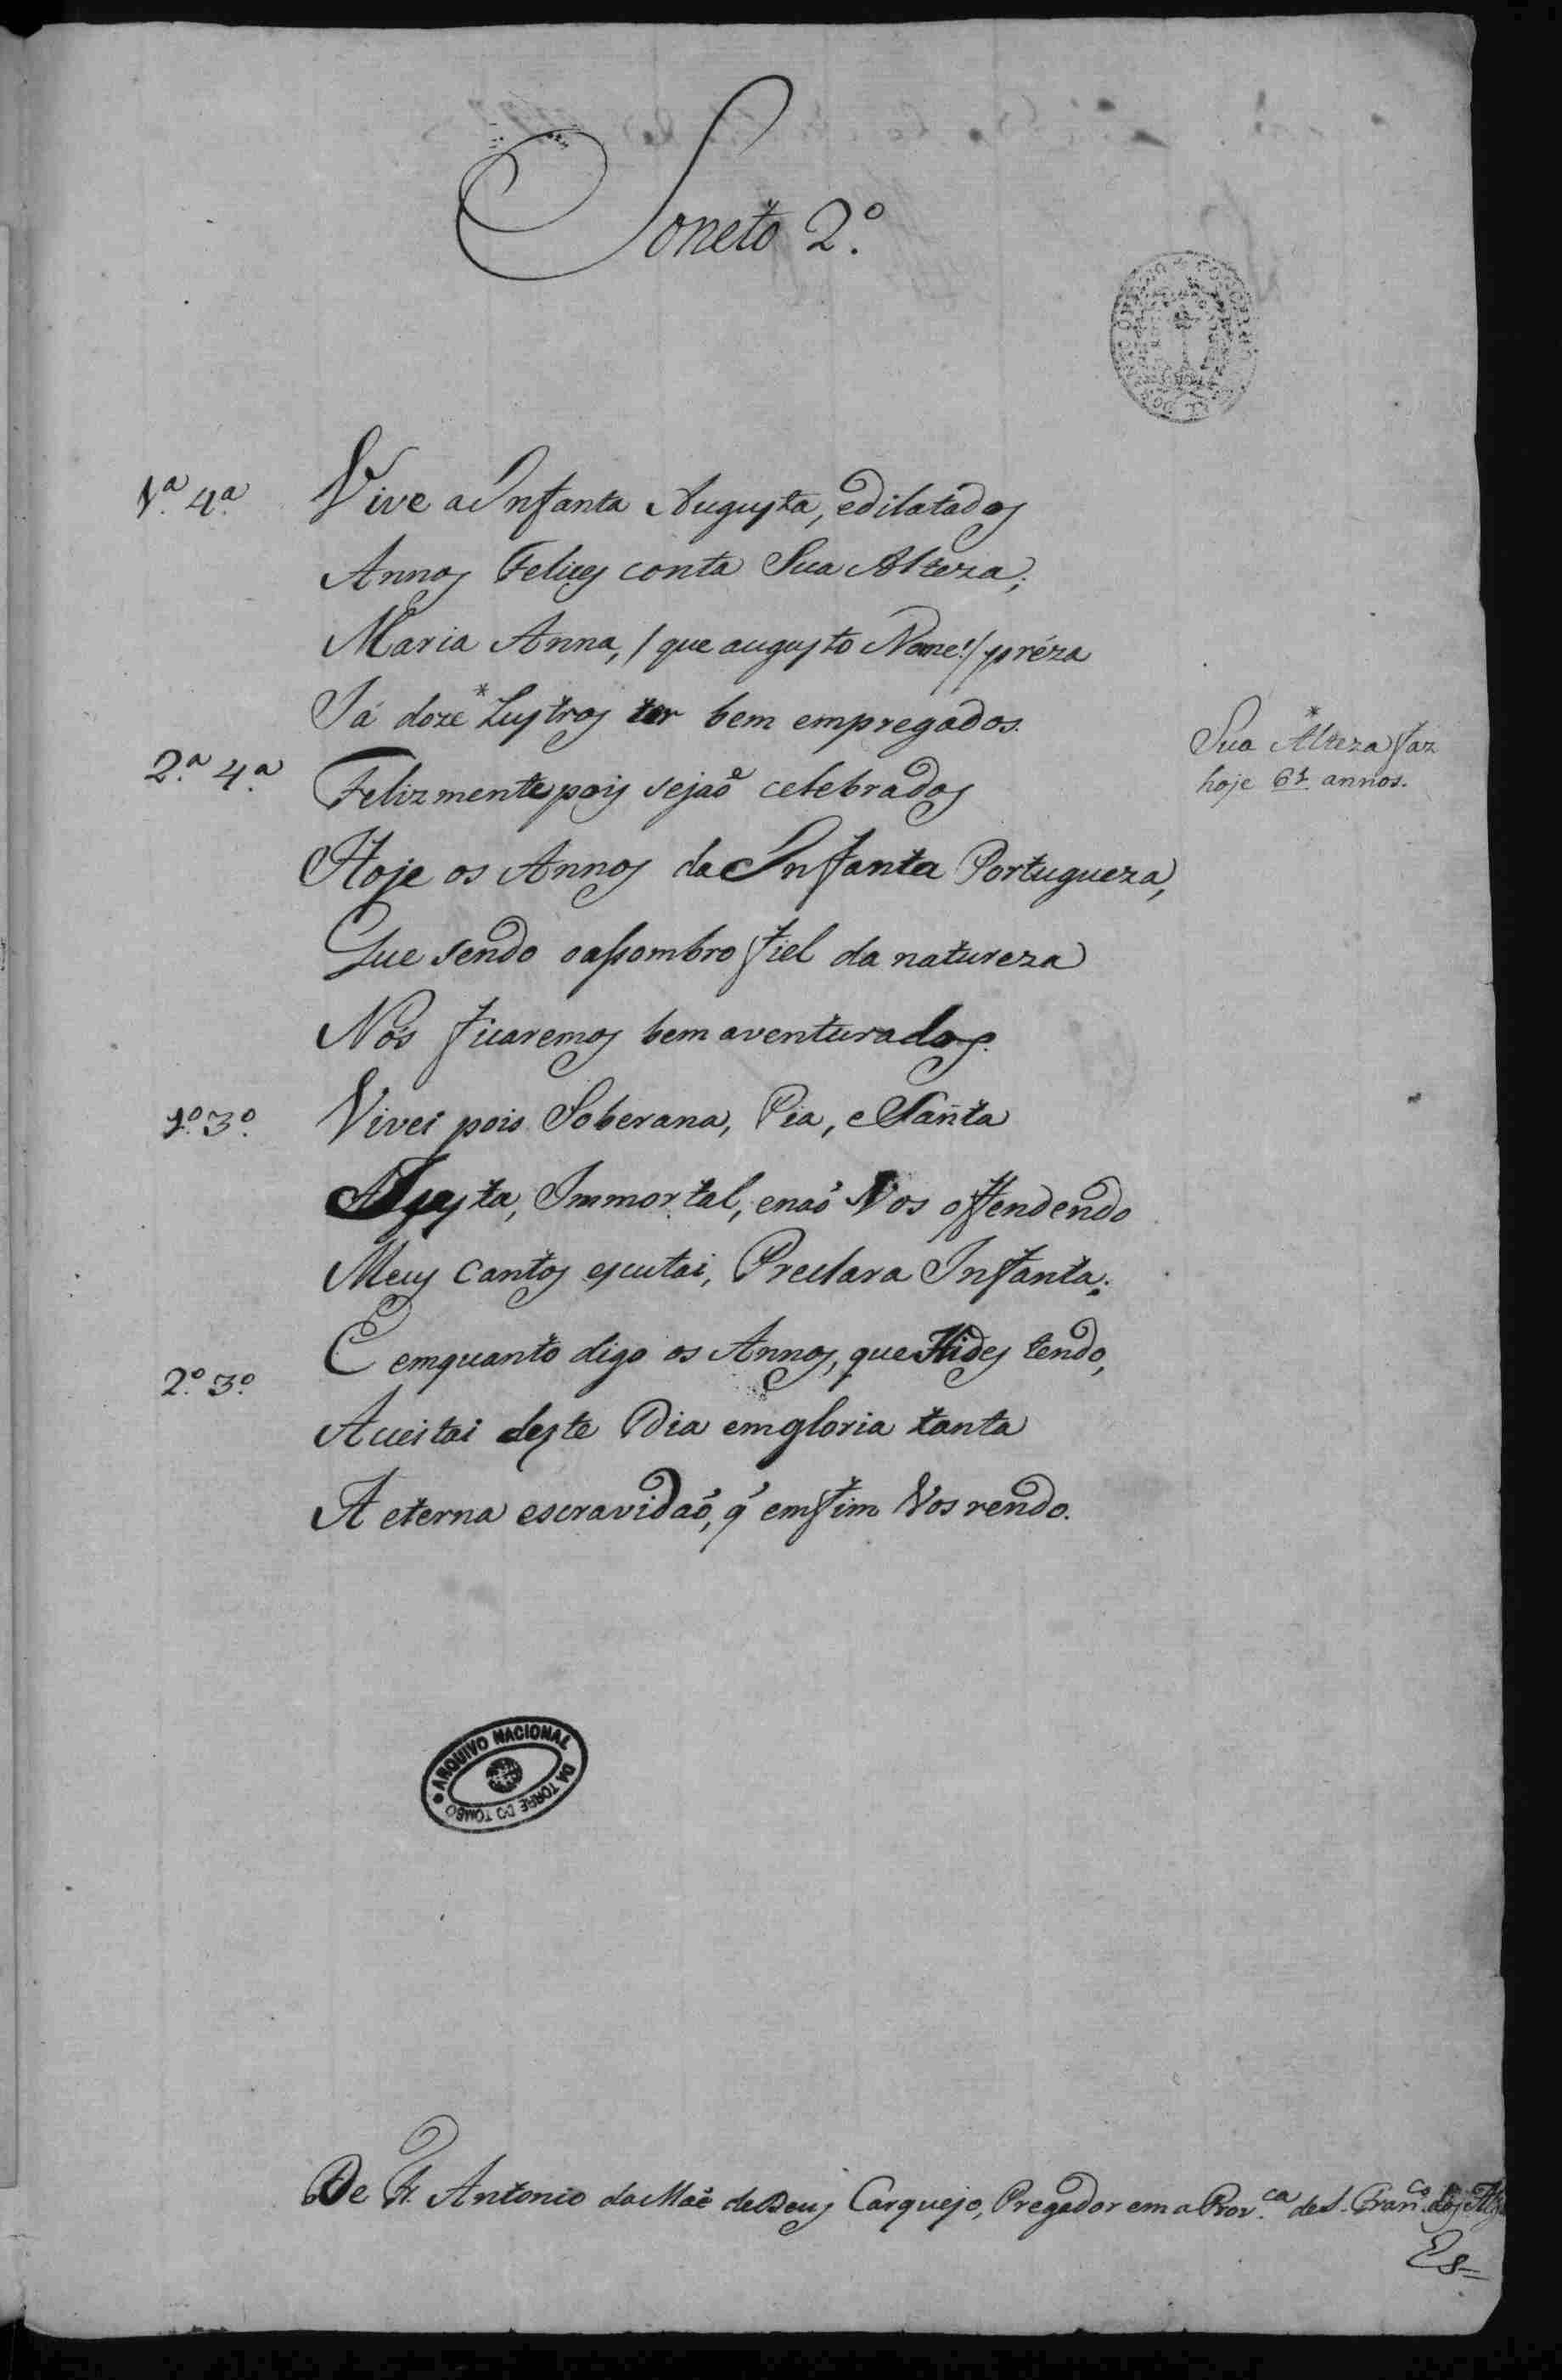 Soneto 2.º
1.ª 4.ª
Vive a Infanta Augusta, e dilatados
Annos Felices conta Sua Alteza;
Maria Anna, / que augusto Nome! / préza
Já doze * Lustros ter bem empregados.
* Sua Alteza faz
hoje 61 annos.
2.ª 4.ª
Felizmente pois sejaõ celebrados
Hoje os Annos da Infanta Portugueza,
Que sendo o assombro fiel da natureza
Nós ficaremos bem aventurados.
1.º 3.º
Vivei pois Soberana, Pia, e Santa
Justa, Immortal, e naõ Vos offendendo
Meus Cantos escutai, Preclara Infanta.
2.º 3.º
E emquanto digo os Annos, que Hides tendo,
Aceitai deste Dia em gloria tanta
A eterna escravidaõ, q̃ emfim Vos rendo.
ARQUIVO NACIONAL
DA TORRE DO TOMBO
De Fr. Antonio da Maẽ de Deus Carquejo, Pregador em a Prov.ca de S. Fran.co dos